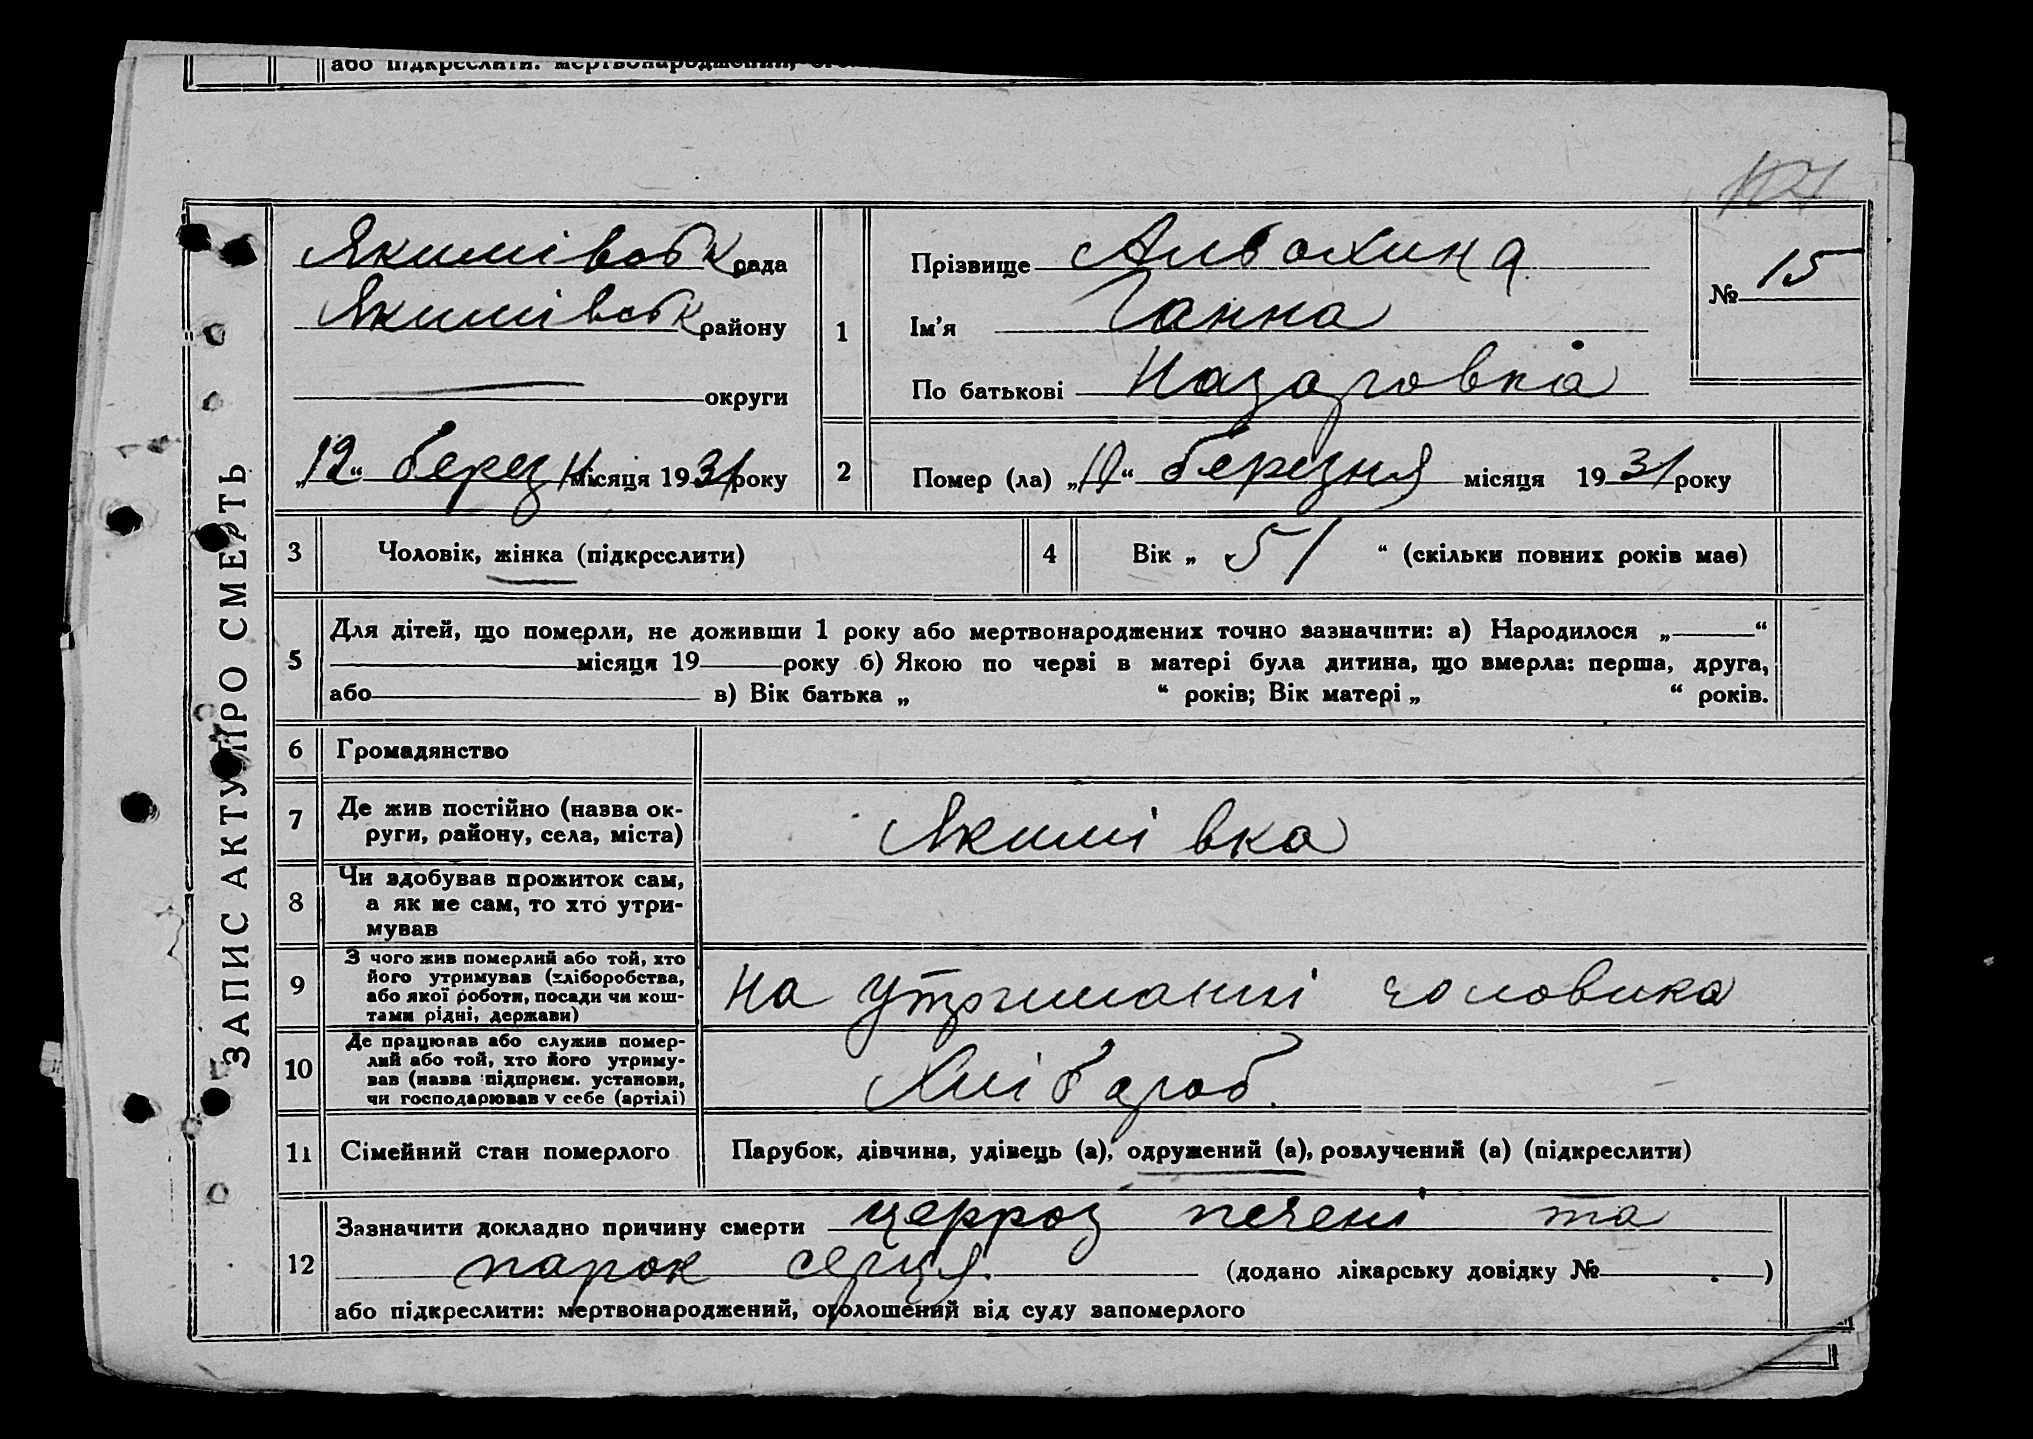 або підкреслити: мертвонароджений,
107
ЗАПИС АКТУ ПРО СМЕРТЬ
Якимівськ рада
Якимівськ району
округи
„12“ берез місяця 1931 року
1
Прізвище
Ім’я Ганна
По батькові Назаровна
№ 15
2
Помер (ла) „10“ березня місяця 1931 року
3 Чоловік, жінка (підкреслити)
4 Вік „ 51 “ (скільки повних років має)
5
Для дітей, що померли, не доживши 1 року або мертвонароджених точно зазначити: а) Народилося „ “
місяця 19 року б) Якою по черві в матері була дитина, що вмерла: перша, друга,
або в) Вік батька „ “ років; Вік матері „ “ років.
6 Громадянство
7 Де жив постійно (назва ок-
руги, району, села, міста)
Якимівка
8 Чи здобував прожиток сам,
а як не сам, то хто утри-
мував
9 З чого жив померлий або той, хто
його утримував (хліборобства,
або якої роботи, посади чи кош-
тами рідні, держави)
На утриманні чоловика
10 Де працював або служив помер-
лий або той, хто його утриму-
вав (назва підприєм. установи,
чи господарював у себе (артілі)
Хлібороб.
11 Сімейний стан померлого
Парубок, дівчина, удівець (а), одружений (а), розлучений (а) (підкреслити)
12
Зазначити докладно причину смерти церроз печені та
парок серця. (додано лікарську довідку № )
або підкреслити: мертвонароджений, оголошений від суду запомерлого